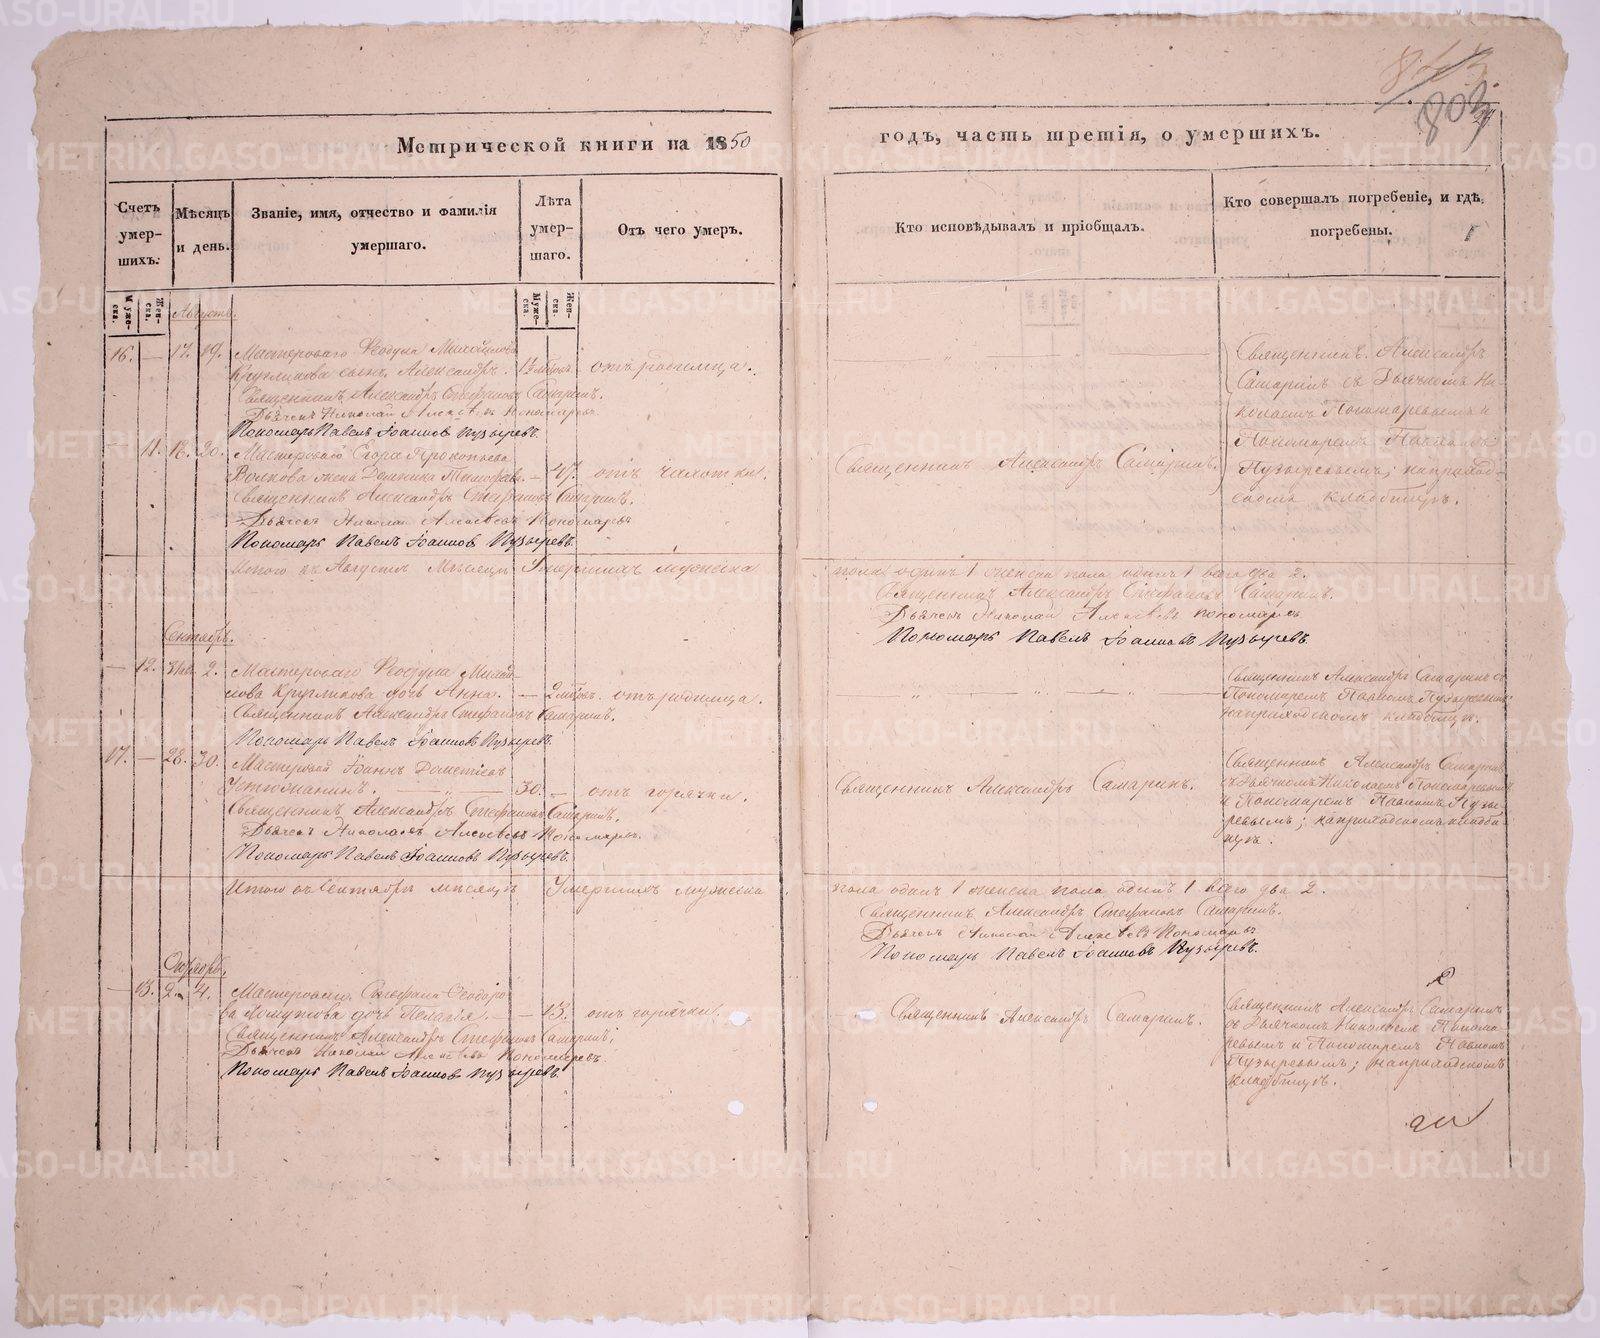 843.
803
29
Метрической книги на 1850
годъ, часть третія, о умершихъ.
Счетъ умер-шихъ.
Мѣсяцъ и день.
Званіе, имя, отчество и фамилія умершаго.
Лѣта умер-шаго.
Отъ чего умеръ.
Кто исповѣдывалъ и пріобщалъ.
Кто совершалъ погребеніе, и гдѣ погребены.
Муже-ска.
Жен-ска.
Муже-ска.
Жен-ска.
Августъ.
16. — 17. 19. Мастероваго Ѳеодула Михайлова
Кругликова сынъ Александръ. отъ родимца.
Священникъ Александръ Стефановъ Самаринъ.
Дьячекъ Николай Алексѣевъ Пономаревъ
Пономарь Павелъ Іоанновъ Пузыревъ.
Священникъ Александръ
Самаринъ съ Дьячкомъ Ни-
колаемъ Пономаревымъ и
Пономаремъ Павломъ
Пузыревымъ; на приход-
скомъ кладбищѣ.
— 11. 18. 20. Мастероваго Егора Прокопьева
Волкова жена Домника Тимофеева. — 47. отъ чахотки.
Священникъ Александръ Самаринъ.
Священникъ Александръ Стефановъ Самаринъ.
Дьячекъ Николай Алексѣевъ Пономаревъ
Пономарь Павелъ Іоанновъ Пузыревъ.
Итого въ Августѣ мѣсяцѣ Умершихъ мужеска
пола одинъ 1 женска пола одинъ 1 всего два 2.
Священникъ Александръ Стефановъ Самаринъ.
Дьячекъ Николай Алексѣевъ Пономаревъ
Пономарь Павелъ Іоанновъ Пузыревъ.
Сентябрь.
— 12. 2. Мастероваго Ѳеодула Михай-
лова Кругликова дочь Анна. — отъ родимца.
Священникъ Александръ Стефановъ Самаринъ.
Пономарь Павелъ Іоанновъ Пузыревъ.
Священникъ Александръ Самаринъ съ
Пономаремъ Павломъ Пузыревымъ;
на приходскомъ кладбищѣ.
17. — 28. 30. Мастеровой Іоаннъ Дометіевъ
Устюжанинъ. — 30. — отъ горячки.
Священникъ Александръ Самаринъ.
Священникъ Александръ Стефановъ Самаринъ.
Дьячекъ Николай Алексѣевъ Пономаревъ.
Пономарь Павелъ Іоанновъ Пузыревъ.
Священникъ Александръ Самаринъ
съ Дьячкомъ Николаемъ Пономаревымъ
и Пономаремъ Павломъ Пузы-
ревымъ; на приходскомъ кладби-
щѣ.
Итого въ Сентябрѣ мѣсяцѣ Умершихъ мужеска
пола одинъ 1 женска пола одинъ 1 всего два 2.
Священникъ Александръ Стефановъ Самаринъ.
Дьячекъ Николай Алексѣевъ Пономаревъ
Пономарь Павелъ Іоанновъ Пузыревъ.
Октябрь.
— 13. 2. 4. Мастероваго Стефана Ѳеодоро-
ва дочь Пелагія. — 13. отъ горячки.
Священникъ Александръ Самаринъ.
Священникъ Александръ Стефановъ Самаринъ.
Дьячекъ Николай Алексѣевъ Пономаревъ.
Пономарь Павелъ Іоанновъ Пузыревъ.
Священникъ Александръ Самаринъ
съ Дьячкомъ Николаемъ Понома-
ревымъ и Пономаремъ Павломъ
Пузыревымъ; на приходскомъ
кладбищѣ.
METRIKI.GASO-URAL.RU